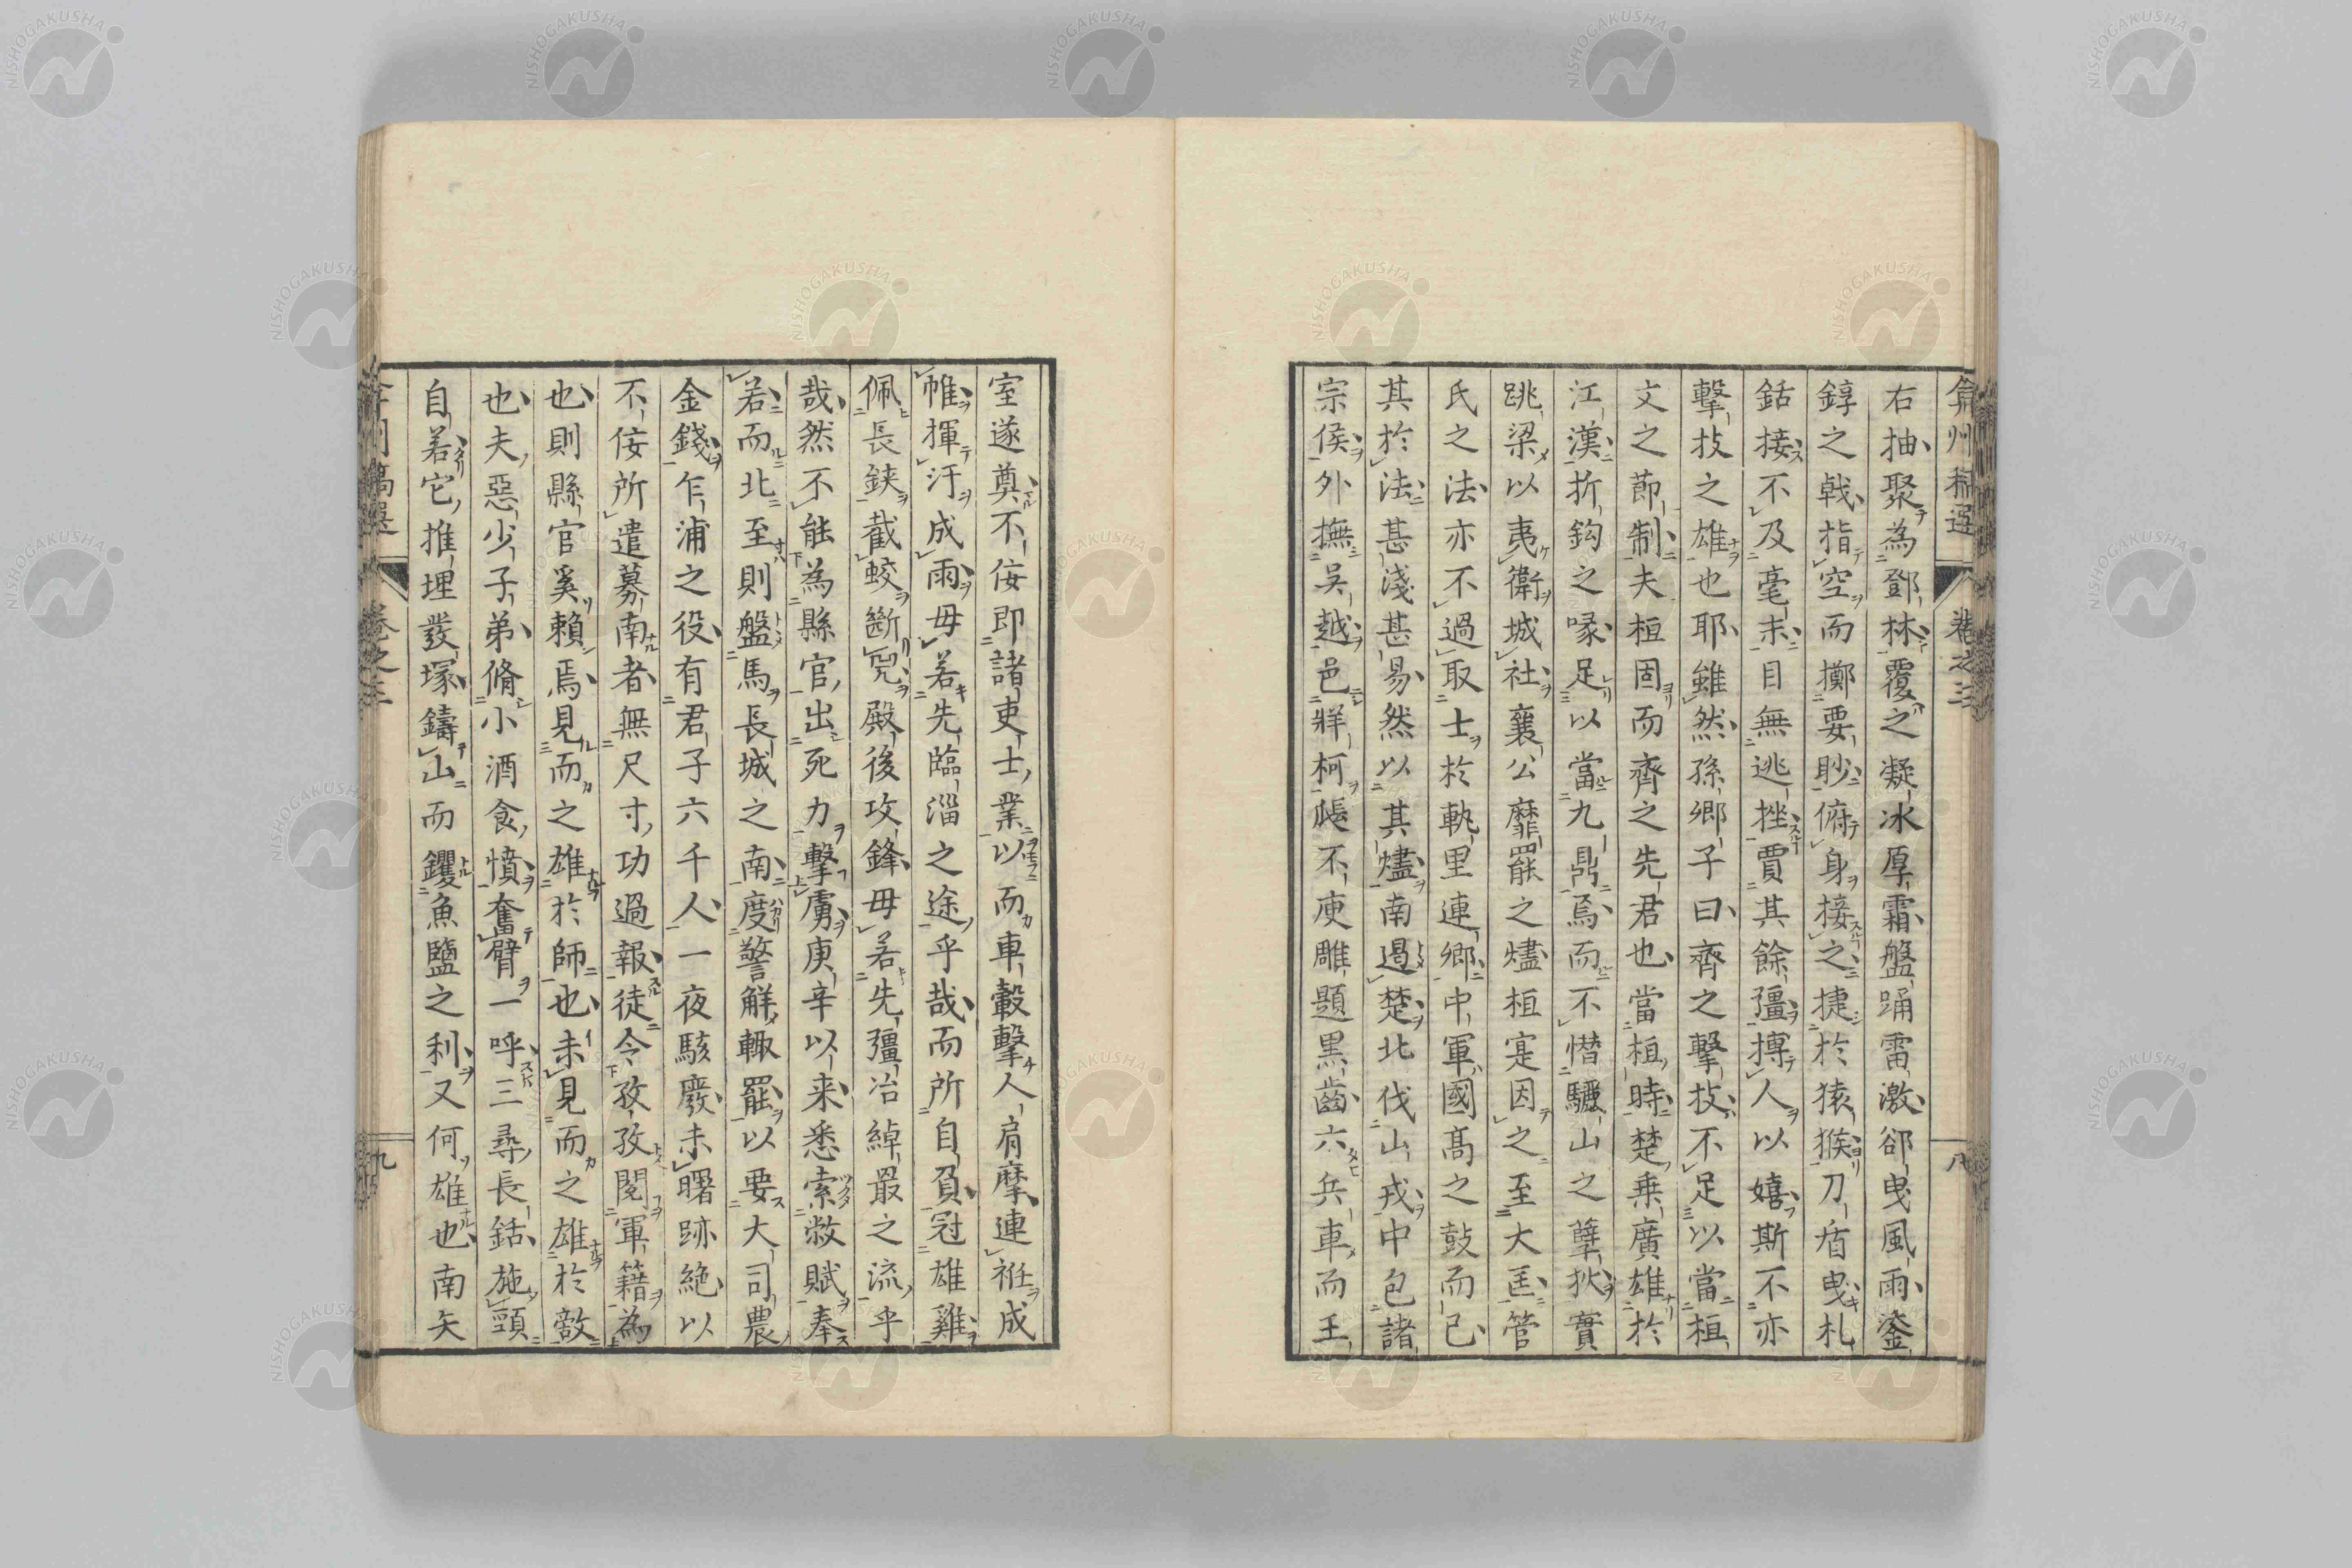 弇州稿選 卷之三 八
右抽聚為鄧林覆之凝冰厚霜盤踊雷激卻曳風雨鋈
錞之戟指空而擲要眇俯身接之捷於猿猴刀盾曳札
銛接不及毫末目無逃挫賈其餘彊摶人以嬉斯不亦
擊技之雄也耶雖然孫卿子曰齊之擊技不足以當桓
文之節制夫桓固而齊之先君也當桓時楚乗廣雄於
江漢折鈎之喙足以當九鼎焉而不憯驪山之孽狄實
跳梁以夷衛城社襄公靡罷之燼桓寔因之至大匡管
氏之法亦不過取士於軌里連郷中軍國髙之鼓而已
其於法甚淺甚易然以其燼南過楚北伐山戎中包諸
宗侯外撫吳越邑牂柯𠊓不庾雕題黒齒六兵車而王
室遂奠不佞即諸吏士業以而車轂擊人肩摩連袵成
帷揮汙成雨毋若先臨淄之途乎哉而所自負冠雄雞
佩長鋏截蛟斷兕殿後攻鋒毋若先彊冶綽最之流乎
哉然不能為縣官出死力擊虜庚辛以来悉索敝賦奉
若而北至則盤馬長城之南度警解輙罷以要大司農
金錢乍浦之役有君子六千人一夜駭廢未曙跡絶以
不佞所遣募南者無尺寸功過報徒令孜孜閲軍籍為
也則縣官奚賴焉見而之雄於師也未見而之雄於敵
也夫惡少子弟脩小酒食憤奮臂一呼三尋長銛施頸
自若它推埋發塚鑄山而钁魚鹽之利又何雄也南矢
卷之三 九